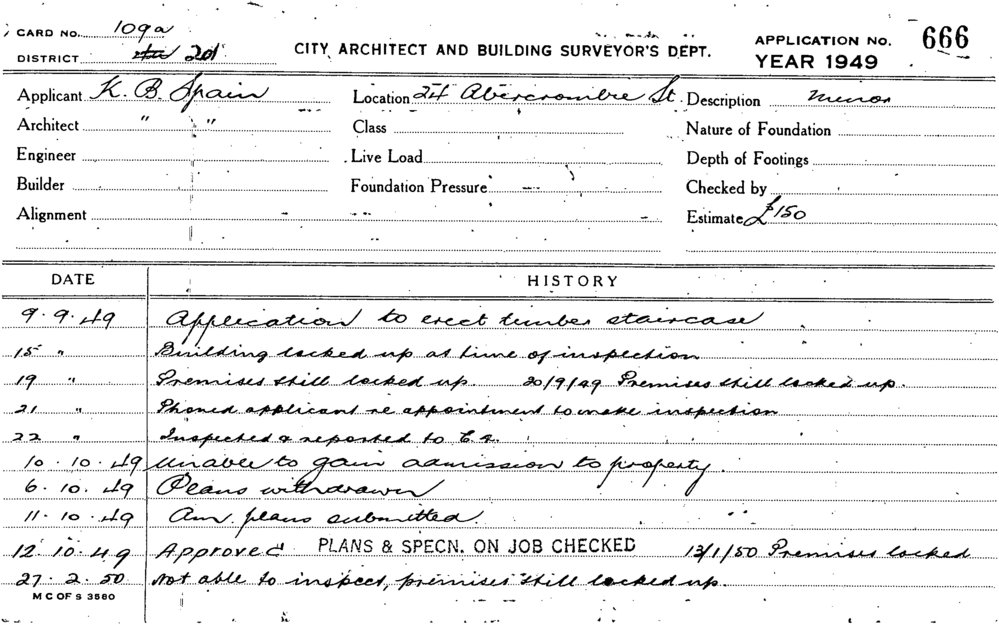 CARD No. 109a
DISTRICT 2d
CITY ARCHITECT AND BUILDING SURVEYOR'S DEPT.
APPLICATION No. 666
YEAR 1949
Applicant K. B. Spain
Location 24 Abercrombie St.
Description Minor
Architect " "
Class
Nature of Foundation
Engineer
Live Load
Depth of Footings
Builder
Foundation Pressure
Checked by
Alignment
Estimate £150
DATE HISTORY
9.9.49 Application to erect timber staircase
15 " Building locked up at time of inspection
19 " Premises still locked up. 20/9/49 Premises still locked up.
21 " Phoned applicant re appointment to make inspection
22 " Inspected & reported to
10.10.49 Unable to gain admission to property.
6.10.49 Plans withdrawn
11.10.49 Am. plans submitted.
12.10.49 Approved PLANS & SPECN. ON JOB CHECKED 13/1/50 Premises locked
27.2.50 Not able to inspect, premises still locked up.
M C OF S 3580